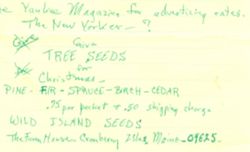 e Yankee Magazine for advertising rates.
The New Yorker - ?
Give Give
TREE SEEDS
for
Christmas -
PINE - FIR - SPRUCE - BIRCH - CEDAR
.75 per packet + .50 shipping charge
WILD ISLAND SEEDS
The Farm House Cranberry Isles, Maine - 04625.